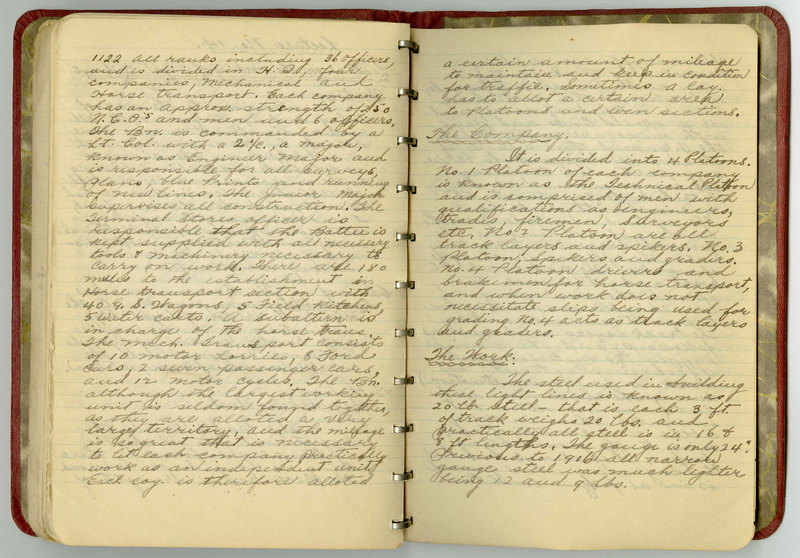 1122 all ranks including 36 officers,
and is divided in H.Q., four
companies, Mechanical and
Horse transport. Each company
has an approx. strength of 250
N.C.O.s and men and 6 officers.
The Bn. is commanded by a
Lt. Col. with a 2 I/c., a major,
known as Engineer Major and
is responsible for all surveys,
plans, blue prints and running
of new lines. The junior Major
supervises all construction. The
Terminal Stores officer is
responsible that the Battn is
kept supplied with all necessary
tools & machinery necessary to
carry on work. There are 180
mules to the establishment in
Horse transport section with
40 G.S. Wagons, 5 Field Kitchens,
5 water carts. A subaltern is
in charge of the horse trans.
The Mech. Transport consists
of 10 motor lorries, 8 Ford
cars, 2 seven passenger cars,
and 12 motor cycles. The Bn.
although the largest working
unit is seldom found together,
as they are alloted a very
large territory and the milage
is so great that is necessary
to let each company practically
work as an independent unit.
Each coy. is therefore alloted
a certain amount of mileage
to maintain and keep in condition
for traffic. Sometimes a Coy.
has to allot a certain area
to Platoons and even sections.
The Company.
It is divided into 4 Platoons.
No. 1 Platoon of each company
is known as the Technical Platoon
and is comprised of men with
qualifications as engineers,
trades, firemen, surveyors
etc, No. 2 Platoon are all
track layers and spikers. No. 3
Platoon, Spikers and graders.
No. 4 Platoon drivers and
brakemen for horse transport,
and when work does not
necessitate steps being used for
grading No. 4 acts as track layers
and graders.
The Work:
The steel used in building
these light lines is known as
20 lb. Steel - that is each 3 ft.
of track weighs 20 lbs. and
practically all steel is in 16 &
8 ft lengths. The gauge is only 24".
Previous to 1916 all narrow
gauge steel was much lighter
being 12 and 9 lbs.